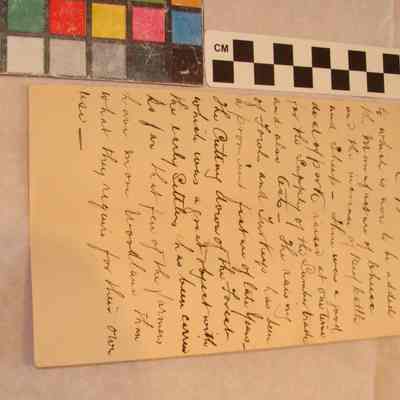 to which is now to be added
the Manufacture of Cheese
and the increase of Beef Cattle
and Sheep — There was a good
deal of pork raised at one time
for the Supply of the Lumber trade
and also Oats — The raising
of Fowls and Turkeys has been
a prominent feature of late Years —
The Cutting down of the Forest
which was a great object with
the early Settlers has been carried
so far that few of the farmers
have more Woodland than
what they require for their own
use —
CM